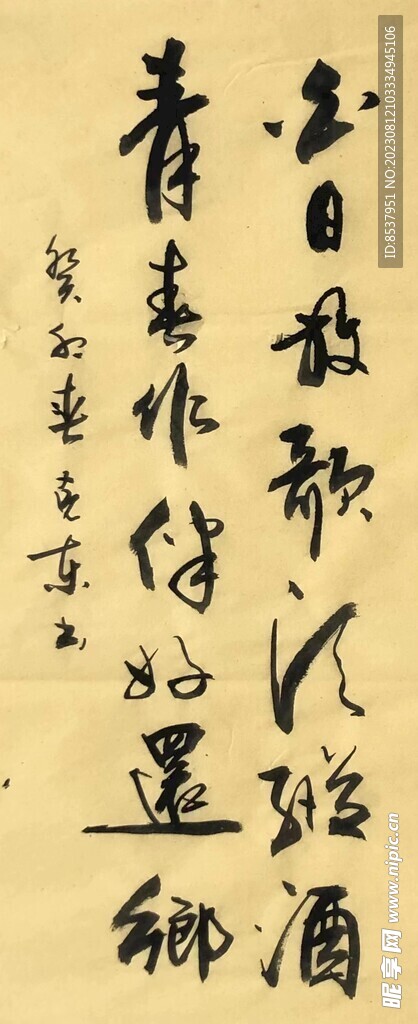 白日放歌須縱酒
青春作伴好還鄉
癸卯春克东书
ID:8537951 NO:20230812103334945106
昵享网 www.nipic.cn